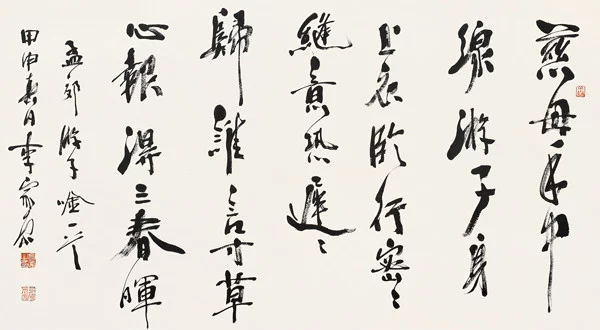 慈母手中
線游子身
上衣臨行密〻
縫意恐遲〻
歸誰言寸草
心報得三春暉
孟郊游子唫一首
甲申春日